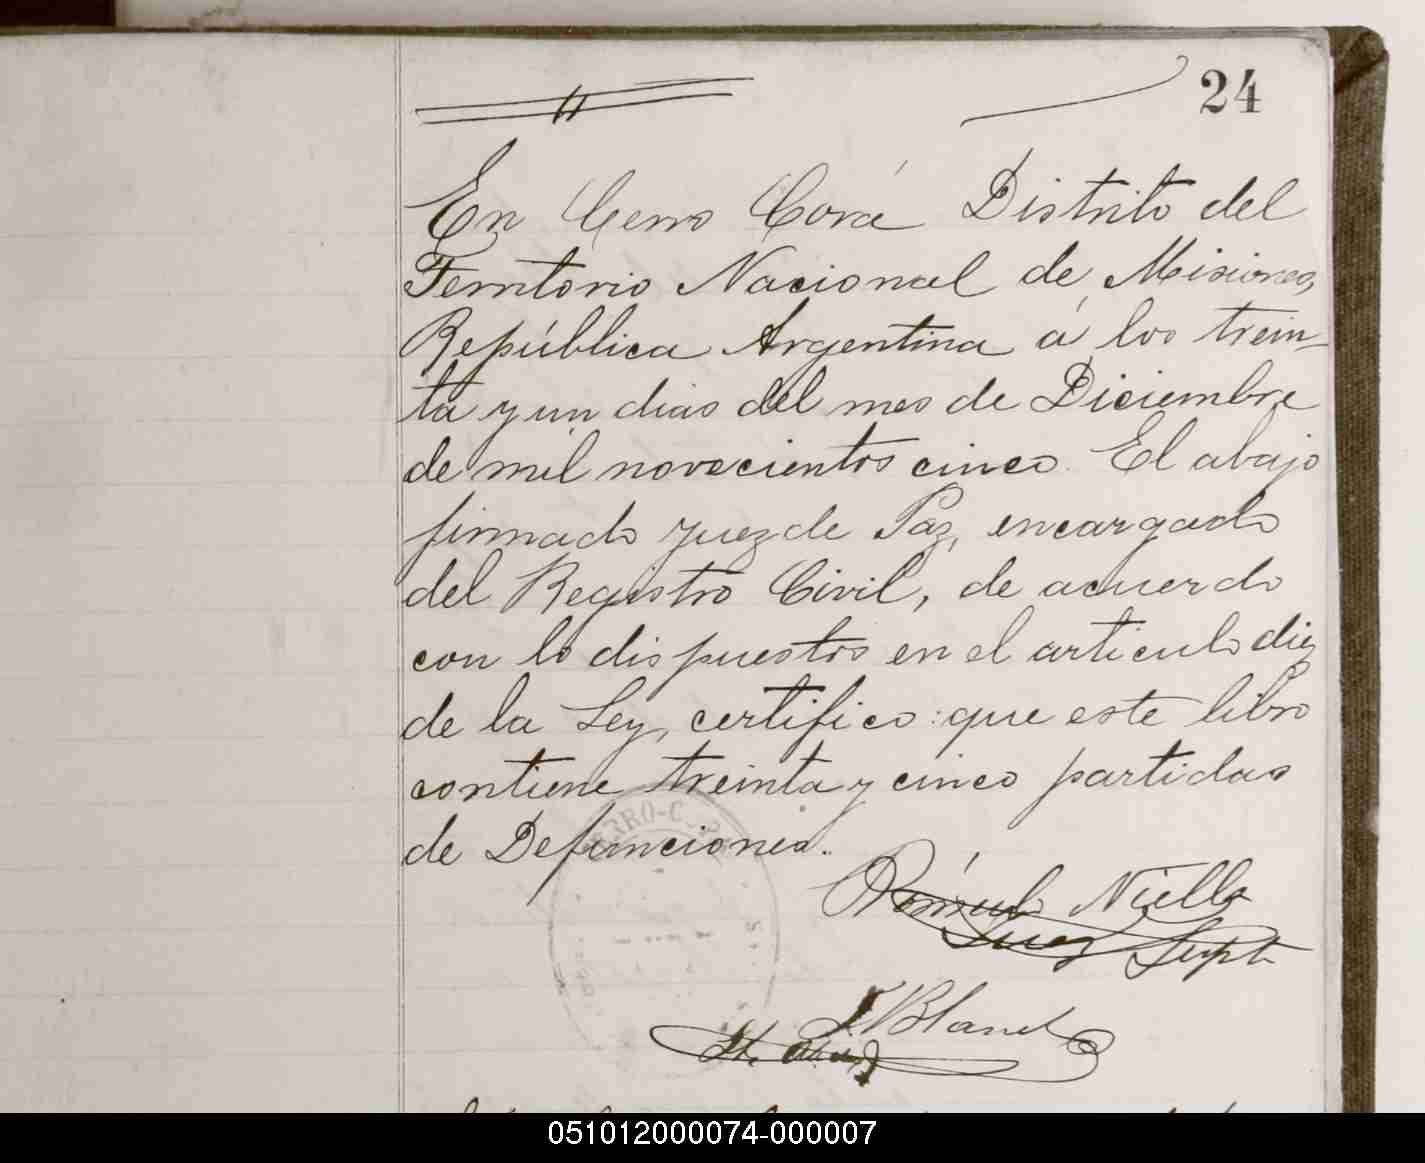 24
En Cerro Corá Distrito del
Territorio Nacional de Misiones,
República Argentina á los trein-
ta y un dias del mes de Diciembre
de mil novecientos cinco. El abajo
firmado Juez de Paz, encargado
del Registro Civil, de acuerdo
con lo dispuestos en el articulo diez
de la Ley, certifico: que este libro
contiene treinta y cinco partidas
de Defunciones.
Rómulo Niello
Juez Supte
J. Bland
051012000074-000007